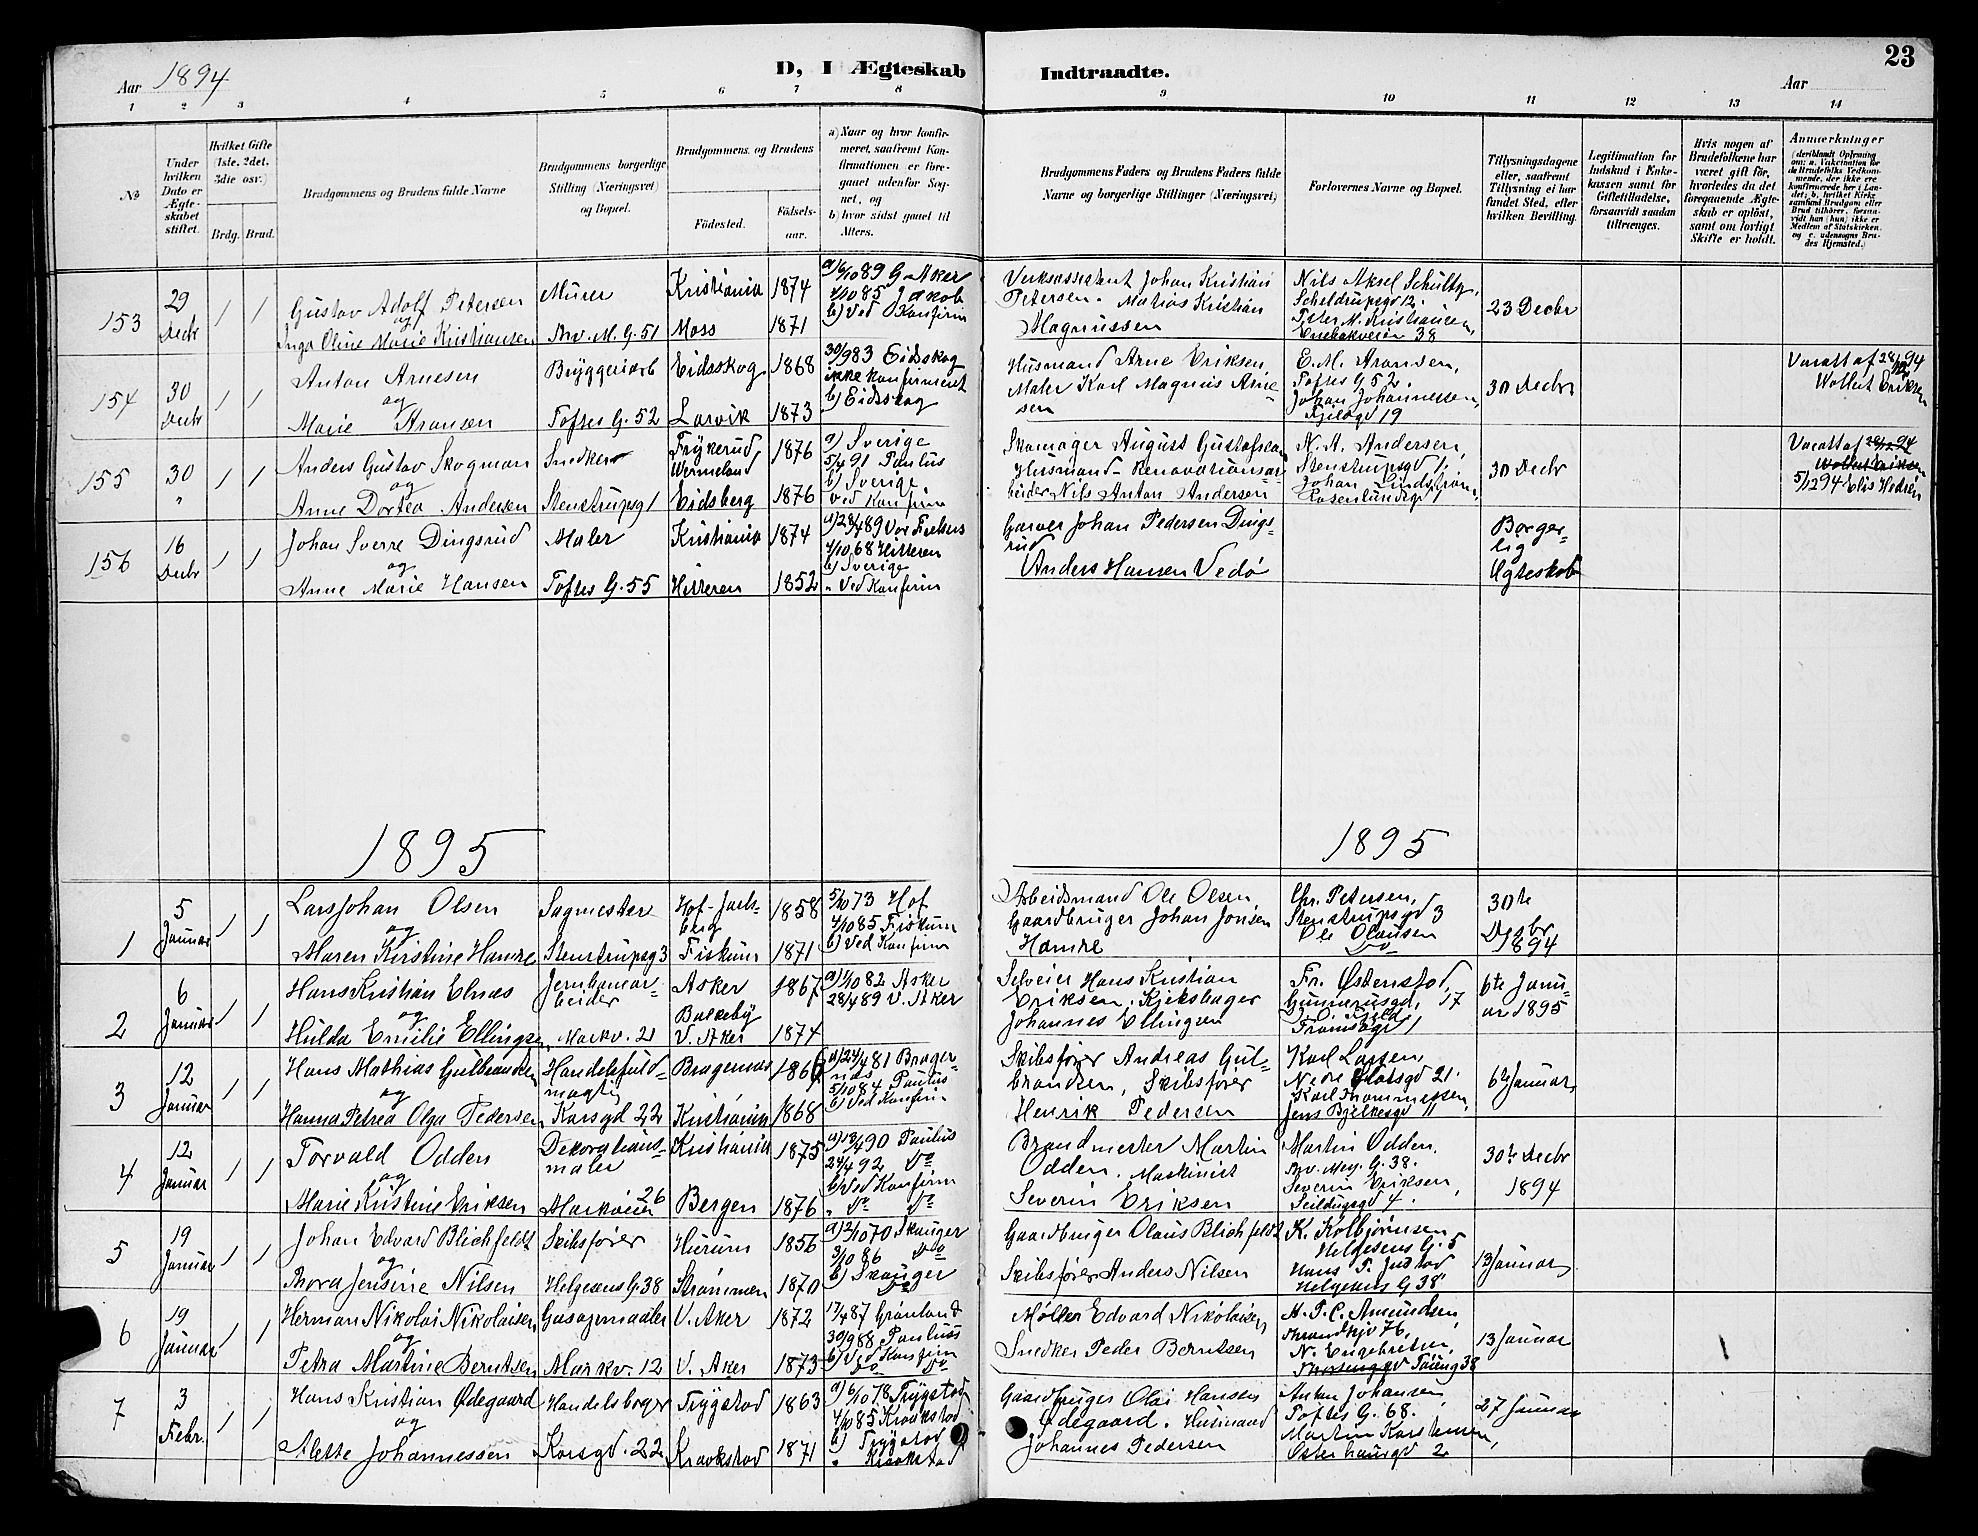 23
Aar 1894
D, I Ægteskab Indtraadte.
Aar
1 2 3 4 5 6 7 8 9 10 11 12 13 14
No.
Under hvilken Dato er Ægteskabet stiftet.
Hvilket Gifte (1ste, 2det, 3die osv.)
Brdg. Brud.
Brudgommens og Brudens fulde Navne
Brudgommens borgerlige Stilling (Næringsvei) og Bopæl.
Brudgommens og Brudens
Födested.
Födselsaar.
a) Naar og hvor konfirmeret, saafremt Konfirmationen er foregaaet udenfor Sognet, og
b) hvor sidst gaaet til Alters.
Brudgommens Faders og Brudens Faders fulde Navne og borgerlige Stillinger (Næringsvei)
Forlovernes Navne og Bopæl.
Tillysningsdagene eller, saafremt Tillysning ei har fundet Sted, efter hvilken Bevilling.
Legitimation for Indskud i Enkekassen samt for Giftetilladelse, forsaavidt saadan tiltrænges.
Hvis nogen af Brudefolkene har været gift för, hvorledes da det foregaaende Ægteskab er oplöst, samt om lovligt Skifte er holdt.
Anmærkninger
153 29 Decbr 1 1
Gustav Adolf Petersen
og
Inga Oline Marie Kristiansen
Murer
Brv. M. G. 51
Kristiania 1874
Moss 1871
a) 6/10 89 G. Aker
4/10 85 Jakob
b) Ved Konfirm
Verksassistent Johan Kristian
Petersen. Matias Kristian
Magnussen
Nils Aksel Schultz,
Scheldrupsgd 12.
Peter M. Kristiansen,
Enebakveien 38
23 Decbr
154 30 Decbr 1 1
Anton Arnesen
og
Marie Aronsen
Bryggeriarb
Toftes G. 52
Eidsskog 1868
Larvik 1873
30/9 83 Eidsskog
ikke konfirmeret
b) Eidsskog
Husmand Arne Eriksen,
Maler Karl Magnus Arnesen
E. M. Aronsen,
Toftes G 52.
Johan Johannessen,
19
30 Decbr
Varatt af 28/12 94
Wollut Eriksen
155 30 " 1 1
Anders Gustav Skogman
og
Anne Dortea Andersen
Snedker
Stenstrupsg 1
Frykerud, Wermeland 1876
Eidsberg 1876
a) Sverige
5/4 91 Paulus
b) Sverige,
Ved Konfirm
Skomager August Gustafson
Husmand - Renovationsarbeider Nils Anton Andersen
N. A. Andersen,
Stenstrupsgd 1.
Johan Lindstrøm,
Rosenlundsgd 1
30 Decbr
Varatt af 28/12 94
5/12 94 Elis Hedrén
156 16 Decbr 1 1
Johan Sverre Dingsrud
og
Anne Marie Hansen
Maler
Toftes G. 55
Kristiania 1874
Hitteren 1852
a) 28/4 89 Vor Frelsers
4/10 68 Hitteren
b) Sverige
" Ved Konfirm
Garver Johan Pedersen Dingsrud
Anders Hansen Vedø
Borgerlig Egteskab
1895 1895
1 5 Januar 1 1
Lars Johan Olsen
og
Maren Kirstine Hamre
Sagmester
Stenstrupsg 3
Hof - Jarlsberg 1858
Fiskum 1871
5/10 73 Hof
4/10 85 Fiskum
b) Ved Konfirm
Arbeidsmand Ole Olsen,
Gaardbruger Johan Jonsen
Hamre
Chr. Petersen,
Stenstrupsgd 3
Ole Olausen
Do
30te Decbr 1894
2 6 Januar 1 1
Hans Kristian Elnæs
og
Hulda Emilie Ellingsen
Jernbanearbeider
Markv. 21
Asker 1867
Bakkeby
V. Aker 1874
a) 1/10 82 Asker
28/4 89 V. Aker
Selveier Hans Kristian
Eriksen. Kjeksbager
Johannes Ellingsen
Fr. Østenstad,
Gunnerusgd, 17
Framsegd 1
6te Januar 1895
3 12 Januar 1 1
Hans Mathias Gulbrandsen
og
Hanna Petrea Olga Pedersen
Handelsfuldmægtig
Korsgd 22
Bragernæs 1866
Kristiania 1868
a) 24/4 81 Bragernæs
5/10 84 Paulus
b) Ved Konfirm
Skibsfører Andreas Gulbrandsen, Skibsfører
Henrik Pedersen
Karl Larsen,
Nedre Slotsgd 21.
Karl Thommessen,
Jens Bjelkesgd 11
6te Januar
4 12 Januar 1 1
Torvald Odden
og
Marie Kristine Eriksen
Dekorationsmaler
Markveien 26
Kristiania 1875
Bergen 1876
a) 13/4 90 Paulus
24/4 92 Do
b) Ved Konfirm
" Do Do
Brandmester Martin
Odden. Maskinist
Severin Eriksen
Martin Odden,
Brv. Mey. G. 38.
Severin Eriksen,
Seildugsgd 4.
30te Decbr 1894
5 19 Januar 1 1
Johan Edvard Blichfeldt
og
Thora Jensine Nilsen
Skibsfører
Helgesens G. 38
Hurum 1856
Strømmen 1870
a) 2/10 70 Skouger
3/10 86 Do
b) Skouger
Do
Gaardbruger Olaus Blichfeldt
Skibsfører Anders Nilsen
K. Kolbjørnsen
Helgesens G. 5
Hans T. Justad
Helgesens G 38
13 Januar
6 19 Januar 1 1
Herman Nikolai Nikolaisen
og
Petra Martine Berntsen
Gasogsmaaler
Markv. 12
V. Aker 1872
V. Aker 1873
17/4 87 Grønland
30/9 88 Paulus
b) Ved Konfirm
Do Do
Møller Edvard Nikolaisen
Snedker Peder Berntsen
A. P. C. Amundsen,
Strandkjv 76,
N. Engebretsen,
Tøieng 38
13 Januar
7 3 Febr. 1 1
Hans Kristian Ødegaard
og
Mette Johannessen
Handelsborger
Korsgd. 22
Trygstad 1863
Kraakstad 1871
a) 6/10 78 Trygstad
4/10 85 Kraakstad
b) Trygstad
" Kraakstad
Gaardbruger Olai Hansen
Ødegaard. Husmand
Johannes Pedersen
Anton Johansen,
Toftes G. 68.
Martin Karstensen,
Osterhausgd 2
27 Januar